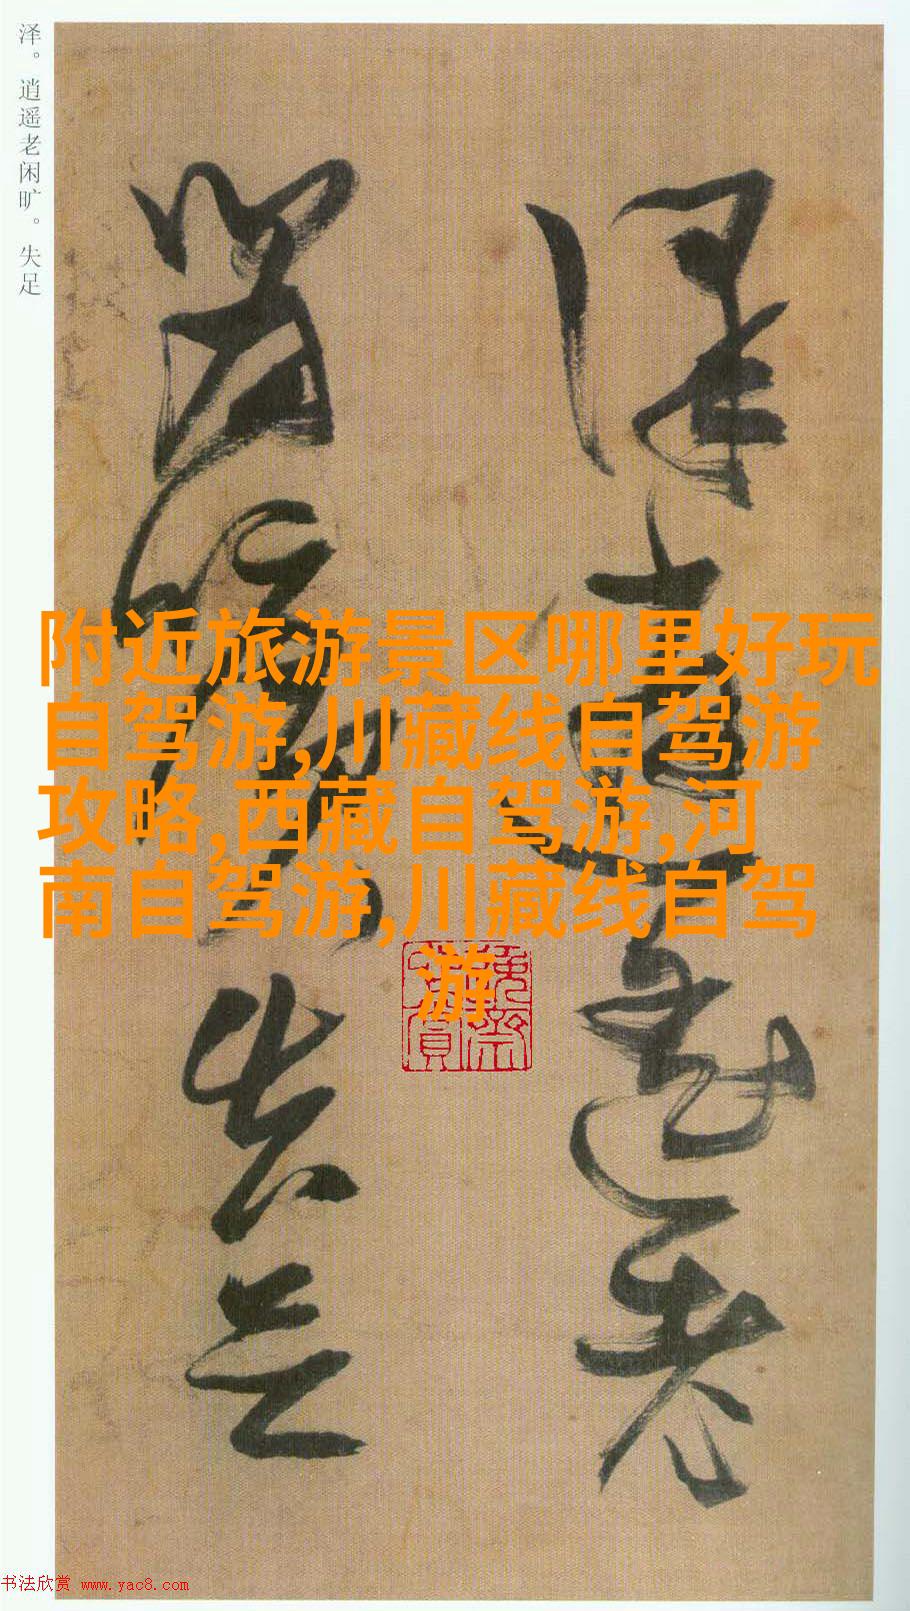 泽。逍遥老闲旷。失足
泽逍遥老
闲旷失足
附近旅游景区哪里好玩
自驾游,川藏线自驾游
攻略,西藏自驾游,河
南自驾游,川藏线自驾
游
书法欣赏 www.yac8.com